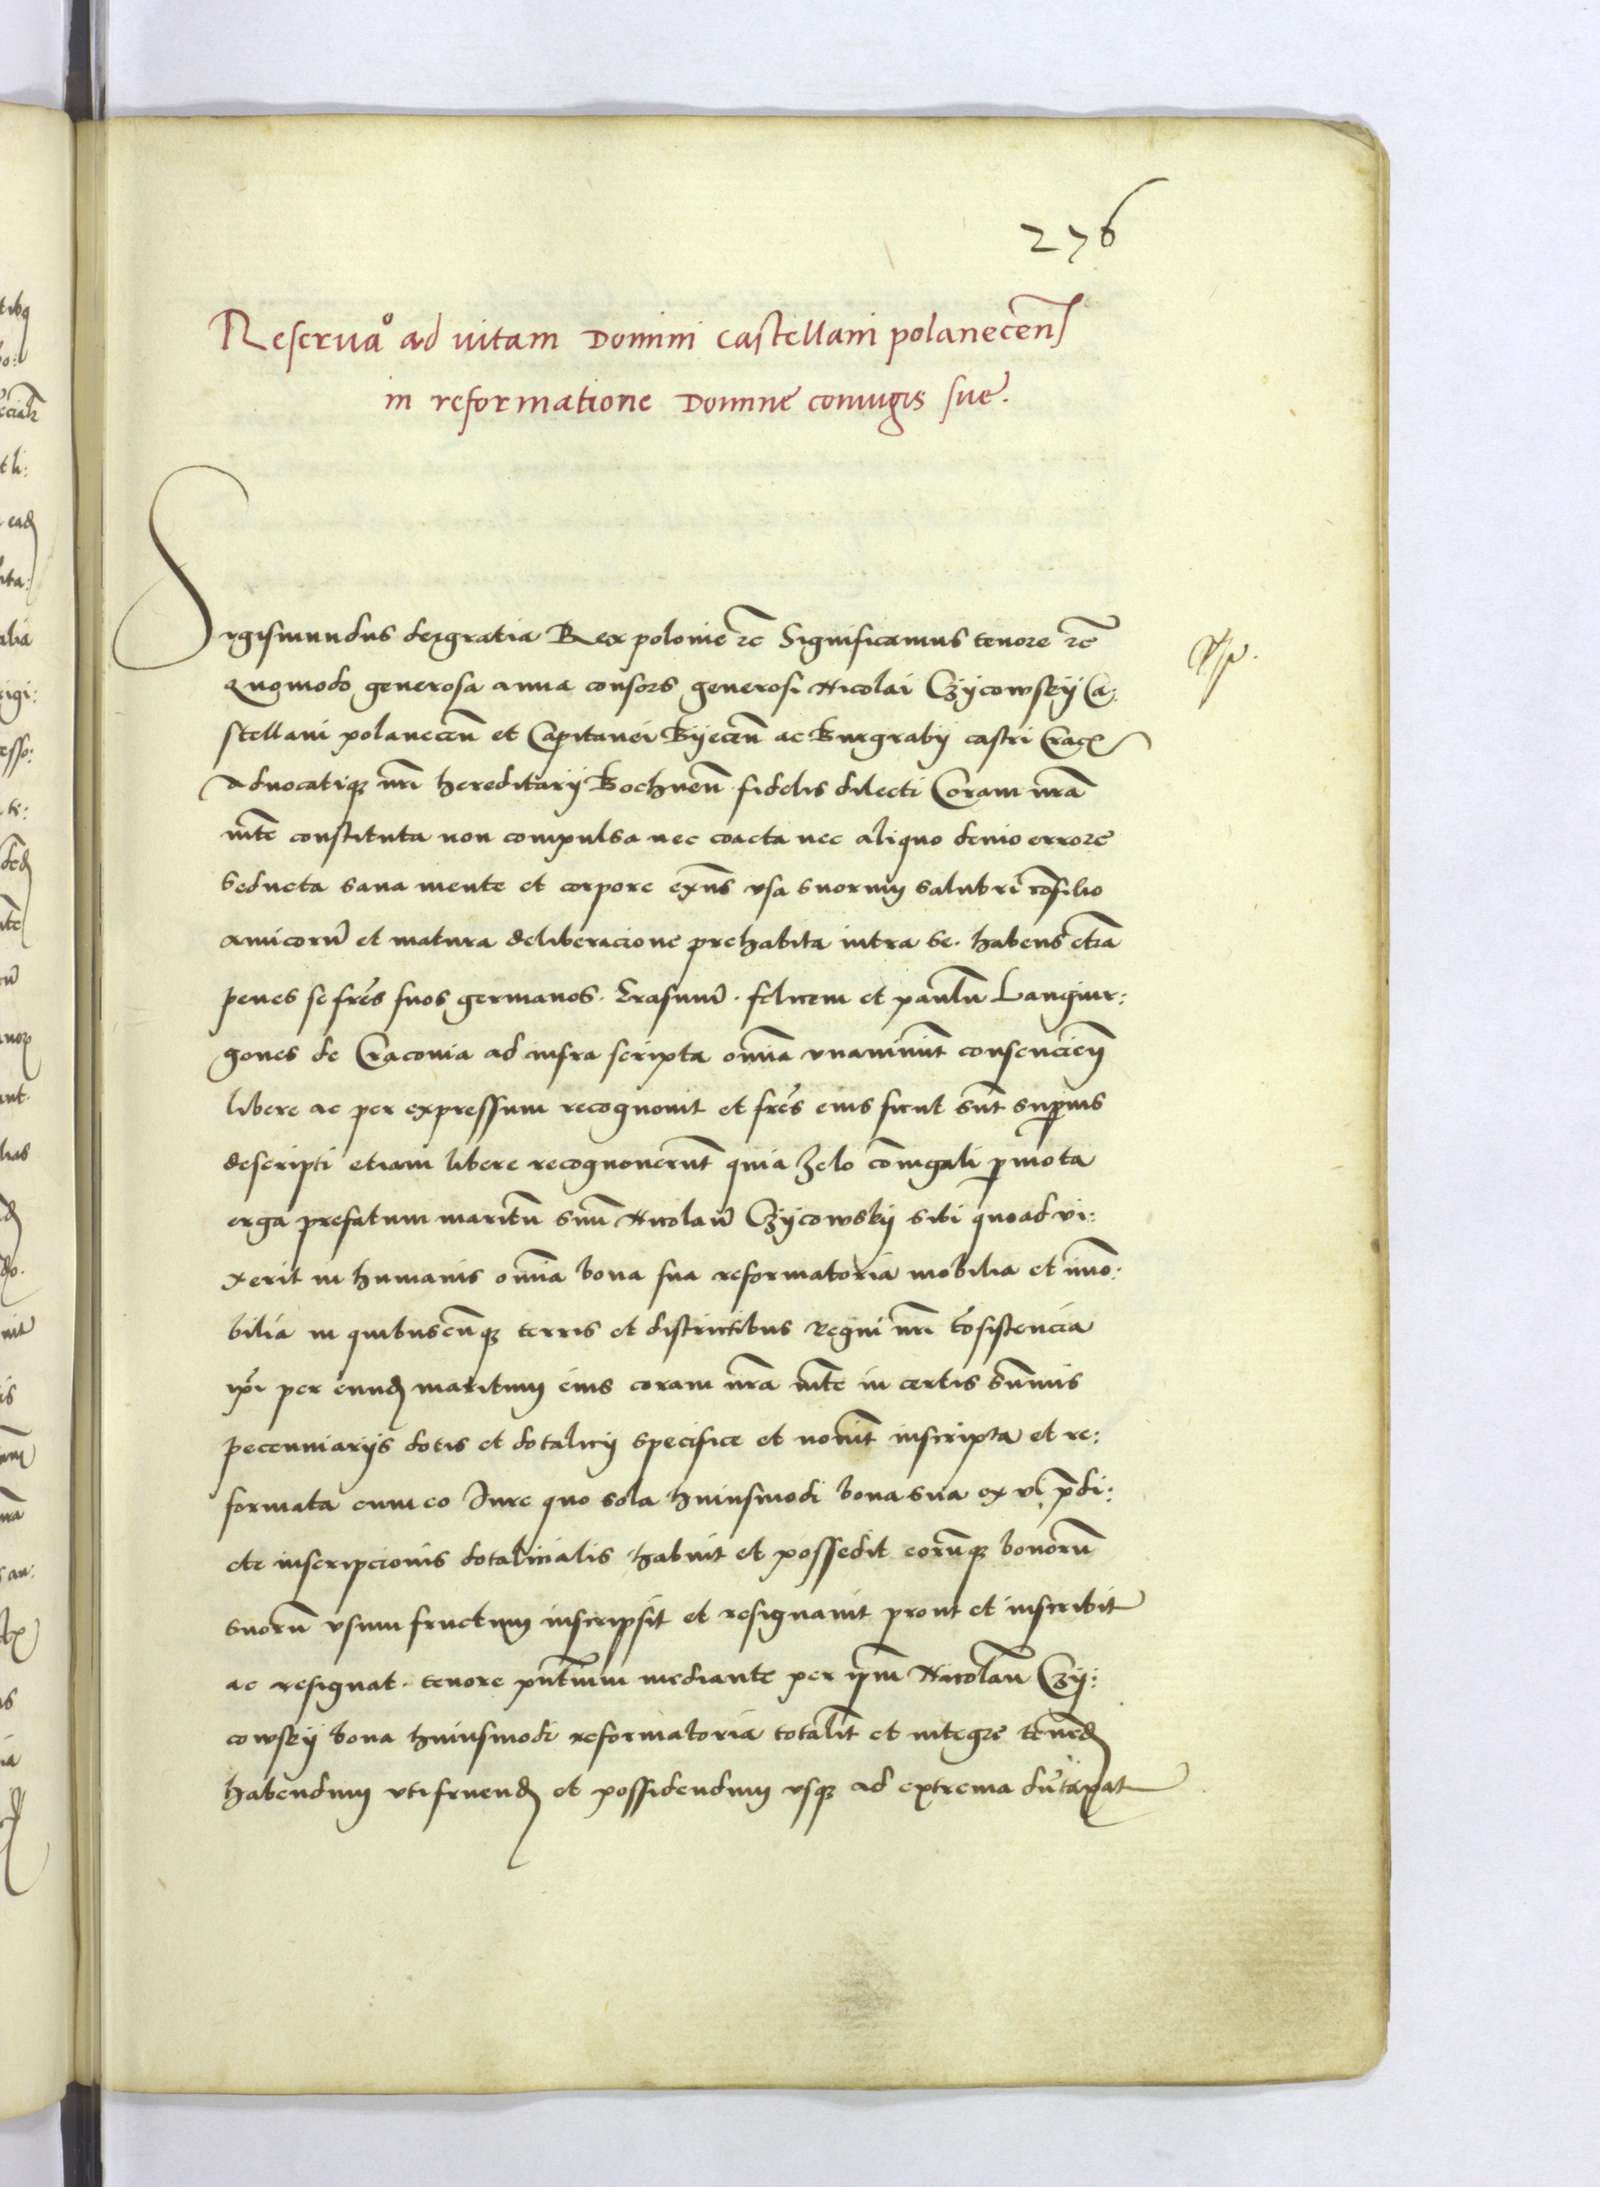 276
Reserua° ad uitam Domini Castellani polanecen̄
in reformatione Domine coniugis sue.
Sigismundus dei gratia Rex polonie &c̄ Significamus tenore &c̄
Quomodo generosa anna consors generosi Nicolai Czÿcowskÿ Ca:
stellani polanecen̄ et Capitanei Bÿecen̄ ac Burgrabÿ castri Crac̄
Aduocatiqz nr̄i hereditarÿ Bochnen̄ fidelis dilecti Coram nr̄a
mt̄e constituta non compulsa nec coacta nec aliquo deuio errore
Seducta sana mente et corpore exn̄s vsa suorum salubri cōsilio
amicorū et matura deliberacione prehabita intra se. habens etiā
penes se frēs suos germanos. Erasmū. felicem et paulū Langiur:
gones de Craconia ad infra scripta omīa vnanimit̄ consencien̄
libere ac per expressum recognouit et frēs eius sicut sūt sup̱erius
descripti etiam libere recognouerūt quia zelo cōiugali p̱mota
erga prefatum maritū suū Nicolaū Czÿcowskÿ sibi quoad vi:
xerit in humanis omīa bona sua reformatoria mobilia et imō:
bilia in quibuscūqz terris et districtibus Regni nr̄i cōsistencia
ip̄i per eund maritum eius coram nr̄a mt̄e in certis sūmis
pecenniarÿs dotis et dotalicÿ specifice et noīnt inscripta et re:
formata cum eo Iure quo sola huiusmodi bona sua ex vi p̄di:
cte inscripcionis dotalicialis habuit et possedit eorūqz bonorū
suorū vsum fructum inscripsit et resignauit prout et inscribit
ac resignat. tenore pn̄tium mediante per ip̄m Nicolaū Czÿ:
cowskÿ bona huiusmodi reformatoria totalit̄ et integre tenēd
habendum vtifruend et possidendum vsqz ad extrema dūtaxat